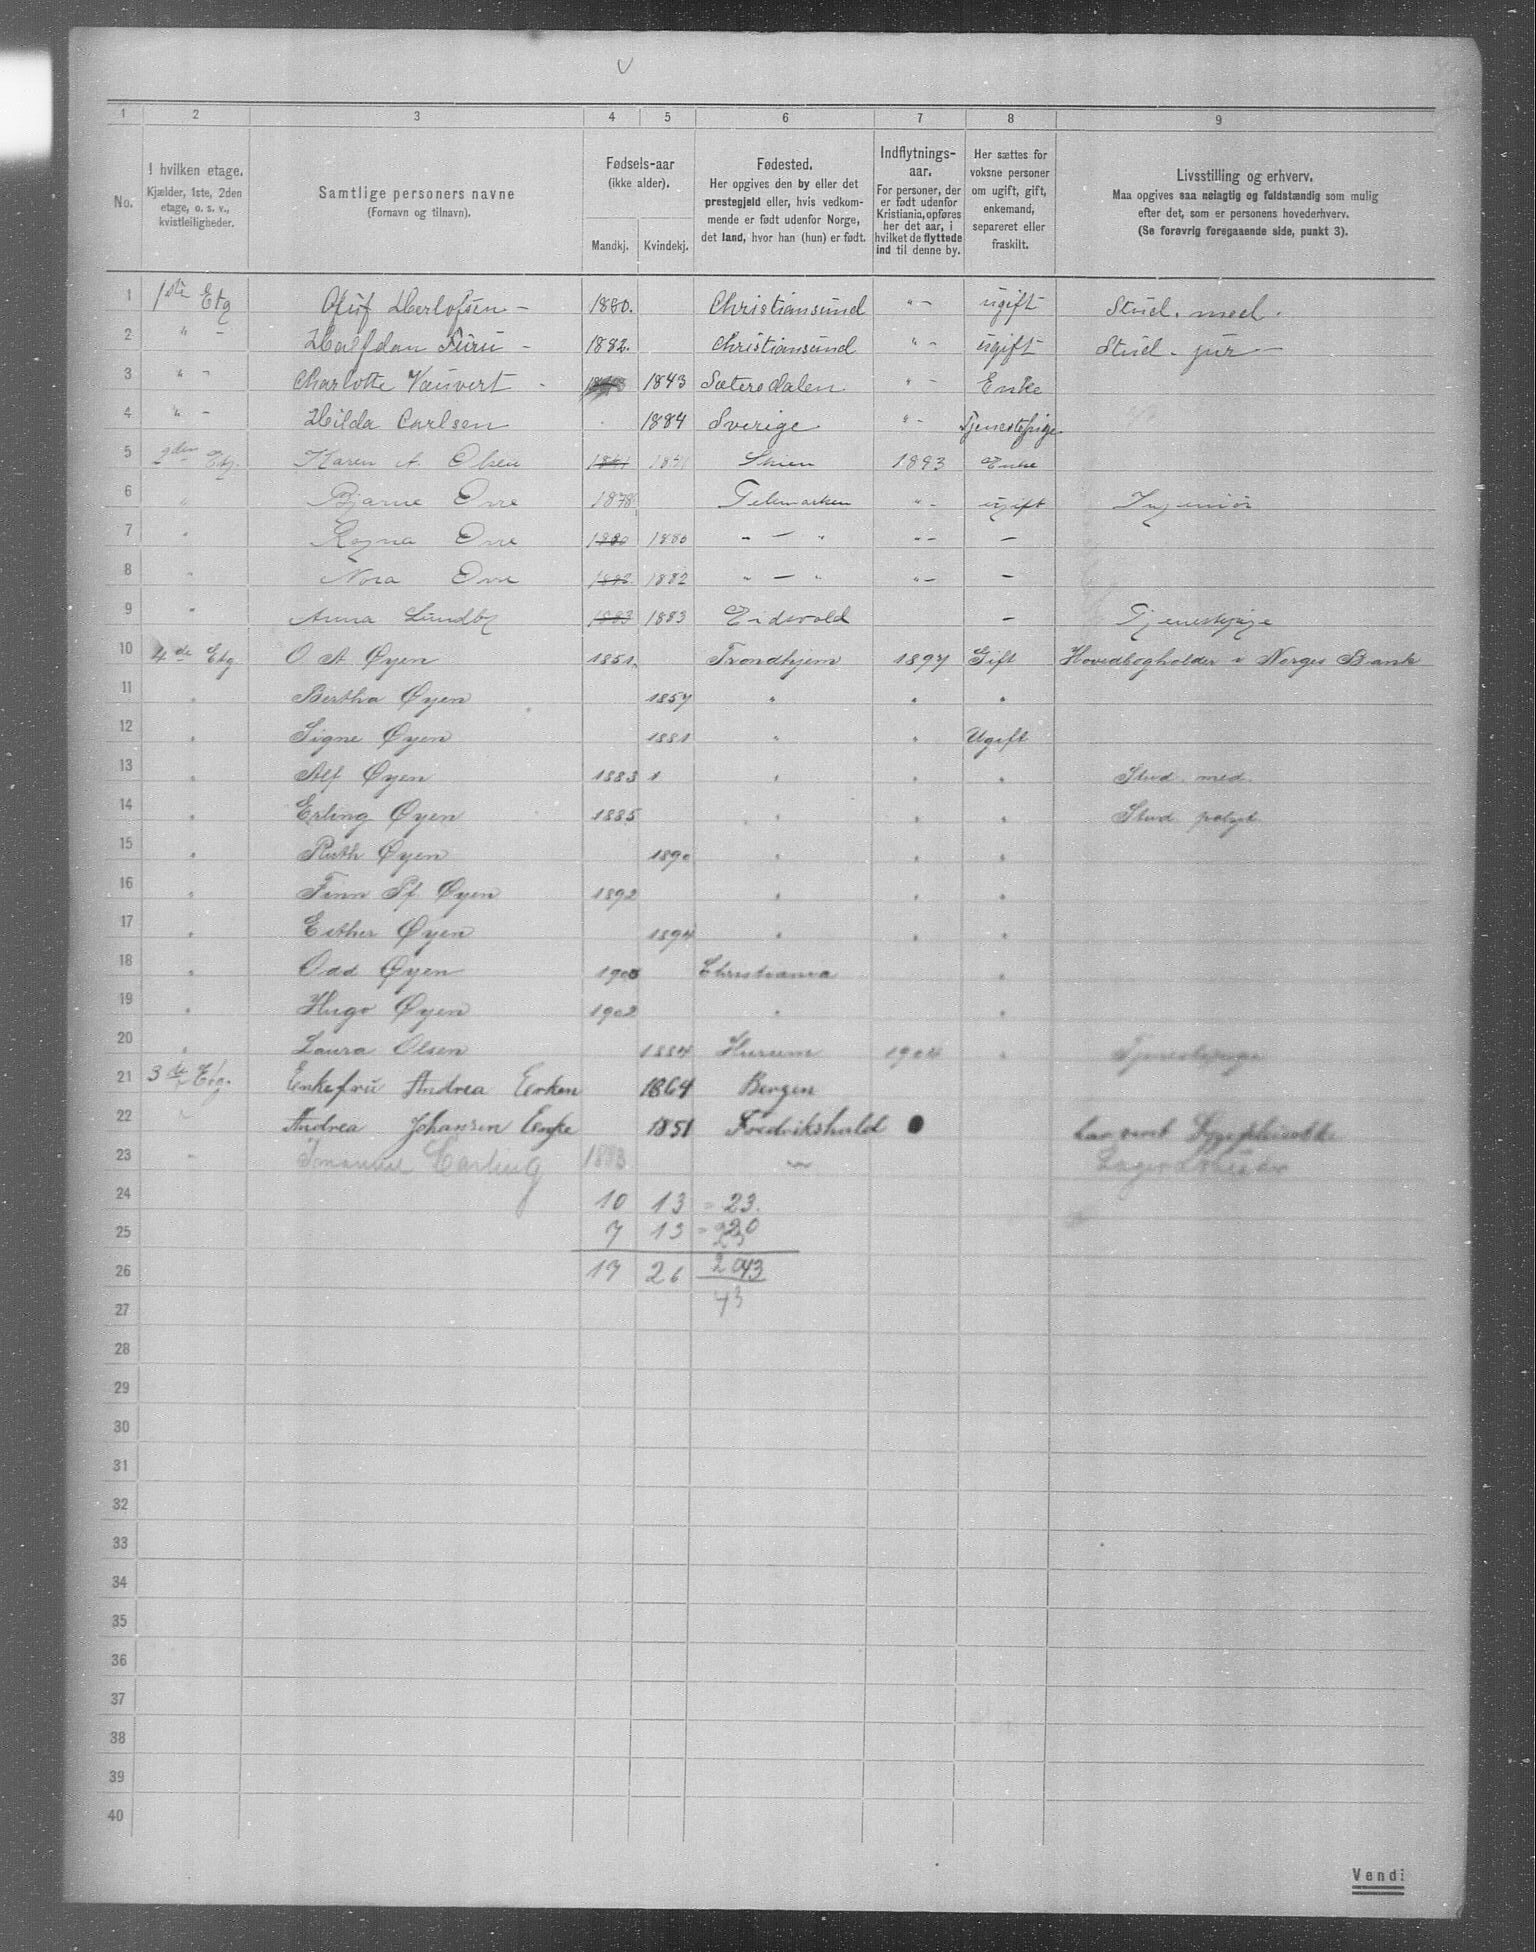 V
1 2 3 4 5 6 7 8 9
No.
I hvilken etage.
Kjælder, 1ste, 2den
etage, o. s. v.,
kvistleiligheder.
Samtlige personers navne
(Fornavn og tilnavn).
Fødsels-aar
(ikke alder).
Mandkj. Kvindekj.
Fødested.
Her opgives den by eller det
prestegjeld eller, hvis vedkom-
mende er født udenfor Norge,
det land, hvor han (hun) er født.
Indflytnings-
aar.
For personer, der
er født udenfor
Kristiania, opføres
her det aar, i
hvilket de flyttede
ind til denne by.
Her sættes for
voksne personer
om ugift, gift,
enkemand,
separeret eller
fraskilt.
Livsstilling og erhverv.
Maa opgives saa nøiagtig og fuldstændig som mulig
efter det, som er personens hovederhverv.
(Se forøvrig foregaaende side, punkt 3).
1 1ste Etg Oluf Herlofsen - 1880. Christiansund " - ugift Stud. med.
2 " - Halfdan Furu - 1882. Christiansund " - ugift Stud. jur -
3 " - Charlotte Vauvert - 1843 Sætersdalen " - Enke
4 " - Hilda Carlsen 1884 Sverige " - Tjenestepige
5 2den Etg. Karen A. Olsen Skien 1893 Enke
6 " Bjarne Orre 1878 Telemarken " - ugift Ingeniør
7 " Ragna Orre 1880 1880 " - " " - -
8 " Nora Orre 1882 1882 " - " " - -
9 " Anna Lundby 1883 1883 Eidsvold - Tjenestepige
10 4de Etg. O A Øyen 1851. Trondhjem 1897 Gift Hovedbogholder i Norges Bank
11 " Bertha Øyen 1857 " " "
12 " Signe Øyen 1881 " " Ugift
13 " Alf Øyen 1883 1 " " " Stud. med.
14 " Erling Øyen 1885 " " " Stud polyt.
15 " Ruth Øyen 1890 " " "
16 " Finn Øyen 1892 " " "
17 " Esther Øyen 1894 " " "
18 " Odd Øyen 1900 Christiania "
19 " Hugo Øyen 1902 " "
20 " Laura Olsen 1884 Hurum 1904 " Tjenestepige
21 3die Etg. Enkefru Andrea Eerken 1864 Bergen
22 " Andrea Johansen Enke 1851 Fredrikshald har været
23 " Carling 1883 "
24 10 13 = 23.
25 7 13 = 20
23
26 17 26 20 43
27 43
28
29
30
31
32
33
34
35
36
37
38
39
40
Vend!